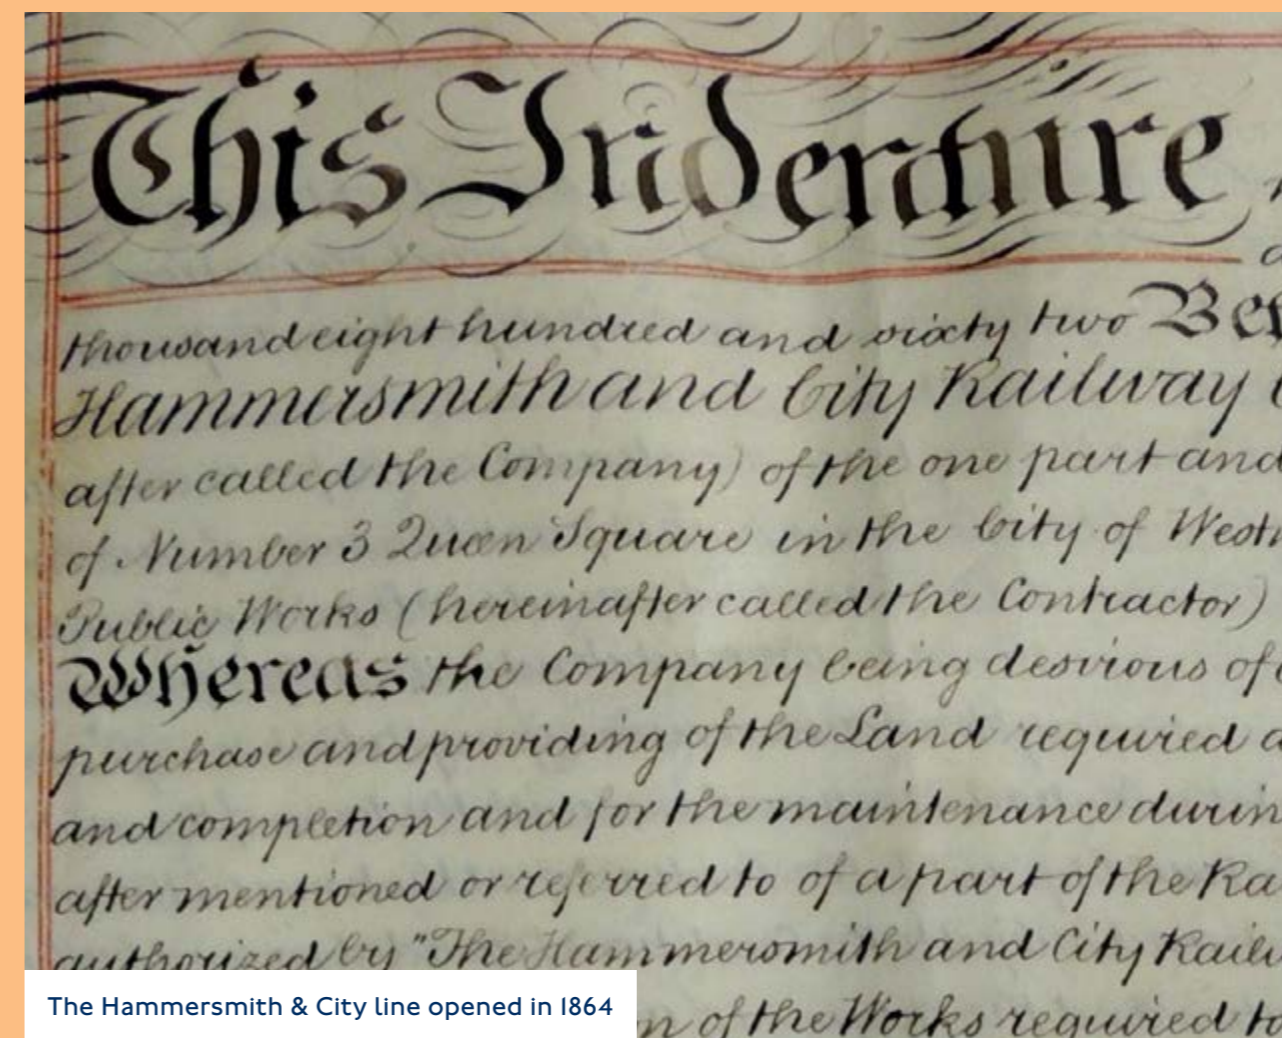 This Indenture
thousand eight hundred and sixty two Bet
Hammersmith and City Railway C
after called the Company) of the one part and
of Number 3 Queen Square in the City of Westm
Public Works (hereinafter called the Contractor)
Whereas the Company being desirous of
purchase and providing of the Land required a
and completion and for the maintenance durin
after mentioned or referred to of a part of the Ra
authorized by "The Hammersmith and City Railw
of the Works required to
The Hammersmith & City line opened in 1864